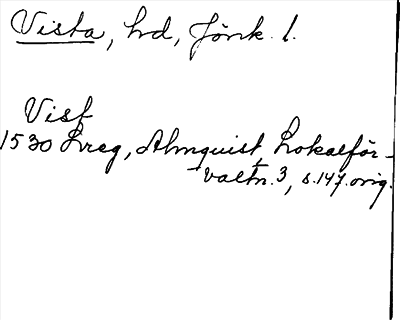 Vista, hd, Jönk. l.
Visf
1530 Lreg, Almquist, Lokalför-
valtn. 3, s. 147. orig.